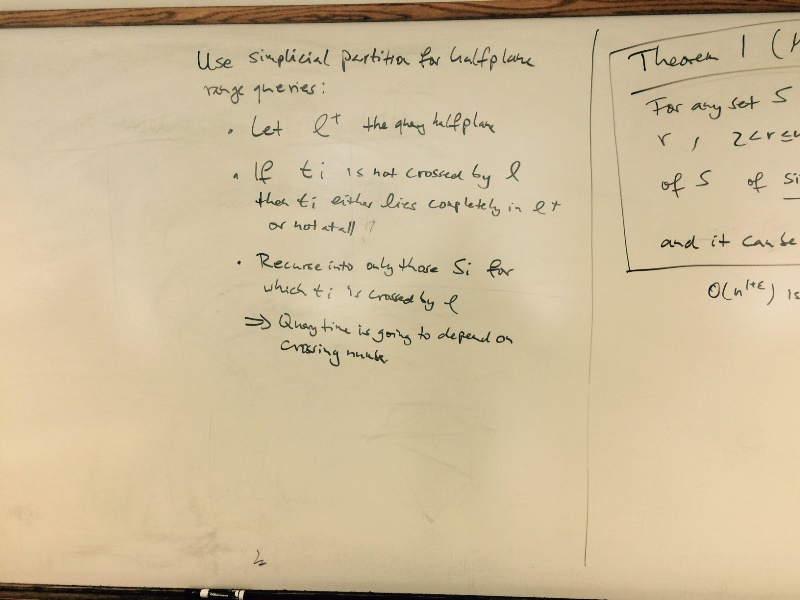 Use simplicial partition for halfplane
range queries:
• Let l⁺ the query halfplane
• If ti is not crossed by l
then ti either lies completely in l⁺
or not at all
• Recurse into only those Si for
which ti is crossed by l
⇒ Query time is going to depend on
crossing number
Theorem 1 (
For any set S
r , 2<r≤n
of S of si
and it can be
O(n^{1+ε}) is